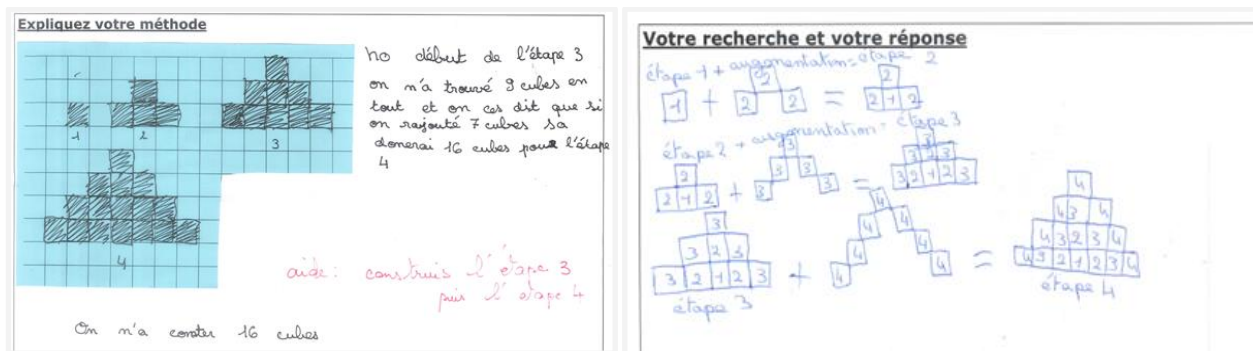 Expliquez votre méthode
no début de l'étape 3
on n'a trouvé 9 cubes en
tout et on ces dit que si
on rajouté 7 cubes sa
donerai 16 cubes pour l'étape
4
1
2
3
4
aide: construis l'étape 3
puis l'étape 4
On n'a conster 16 cubes
Votre recherche et votre réponse
étape 1 + augmentation = étape 2
2 2
1 + 2 2 = 2 1 2
étape 2 + augmentation = étape 3
3 3
2 3 3 3 2 3
2 1 2 + 3 3 = 3 2 1 2 3
4
3 4 4 4
3 2 3 4 4 4 3 4
3 2 1 2 3 + 4 4 = 4 3 2 3 4
4 4 4 3 2 1 2 3 4
étape 3
étape 4